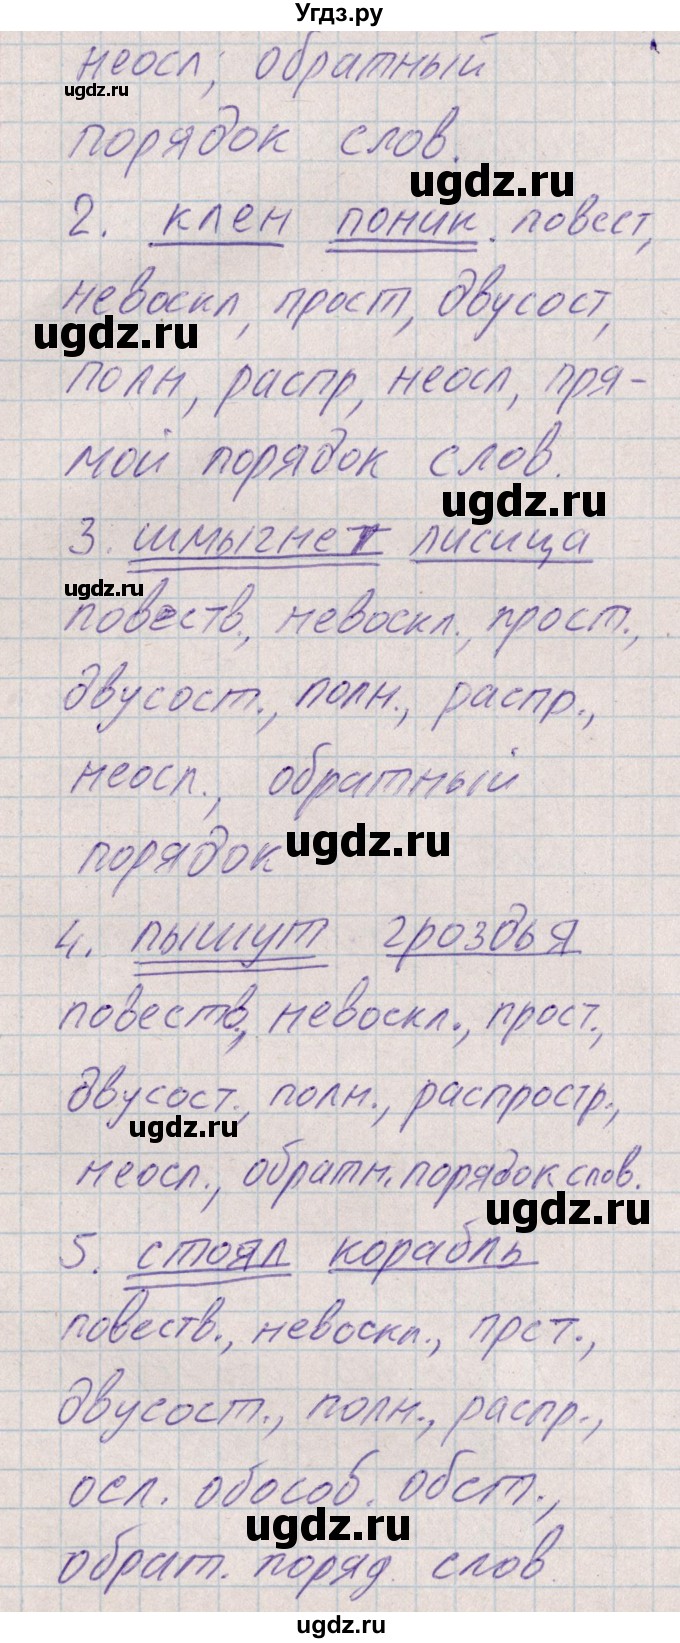 Угдз.ру
неосл; обратный
ugdz.ru
порядок слов.
ugdz.ru
2. клен поник. повест,
невоскл, прост, двусост,
ugdz.ru
полн, распр, неосл, пря-
мой порядок слов.
ugdz.ru
3. шмыгнет лисица
ugdz.ru
повеств., невоскл., прост.,
двусост., полн., распр.,
неосл., обратный
порядок
ugdz.ru
4. пышут гроздья
повеств., невоскл., прост.,
двусост., полн., распростр.,
ugdz.ru
неосл., обратн. порядок слов.
ugdz.ru
5. стоял корабль
повеств., невоскл., прст.,
двусост., полн., распр.,
осл. обособ. обст.,
ugdz.ru
обрат. поряд. слов
ugdz.ru